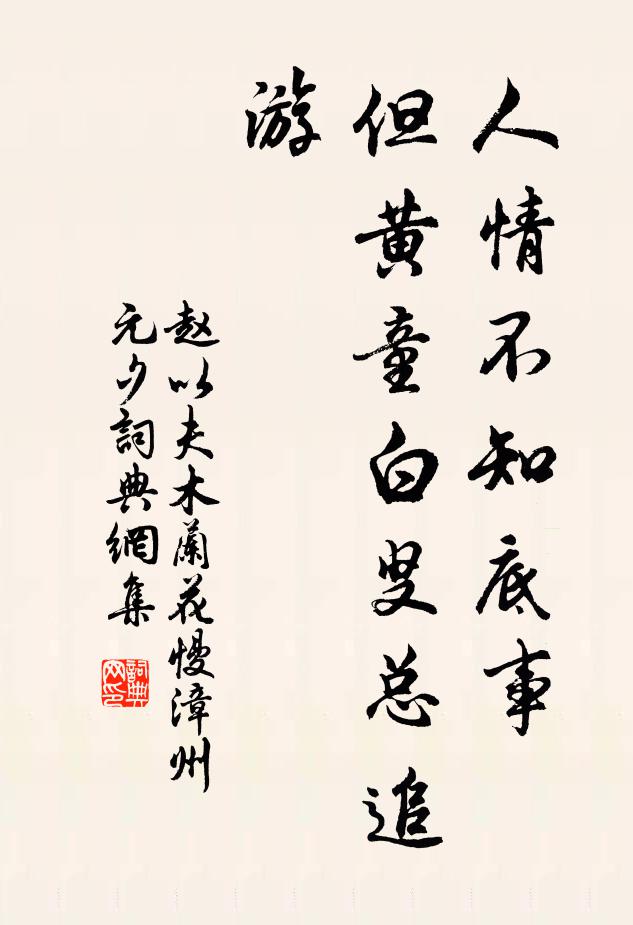 人情不知底事
但黄童白叟总追
游
赵以夫木蘭花慢漳州
元夕詞典網集
詞典网印